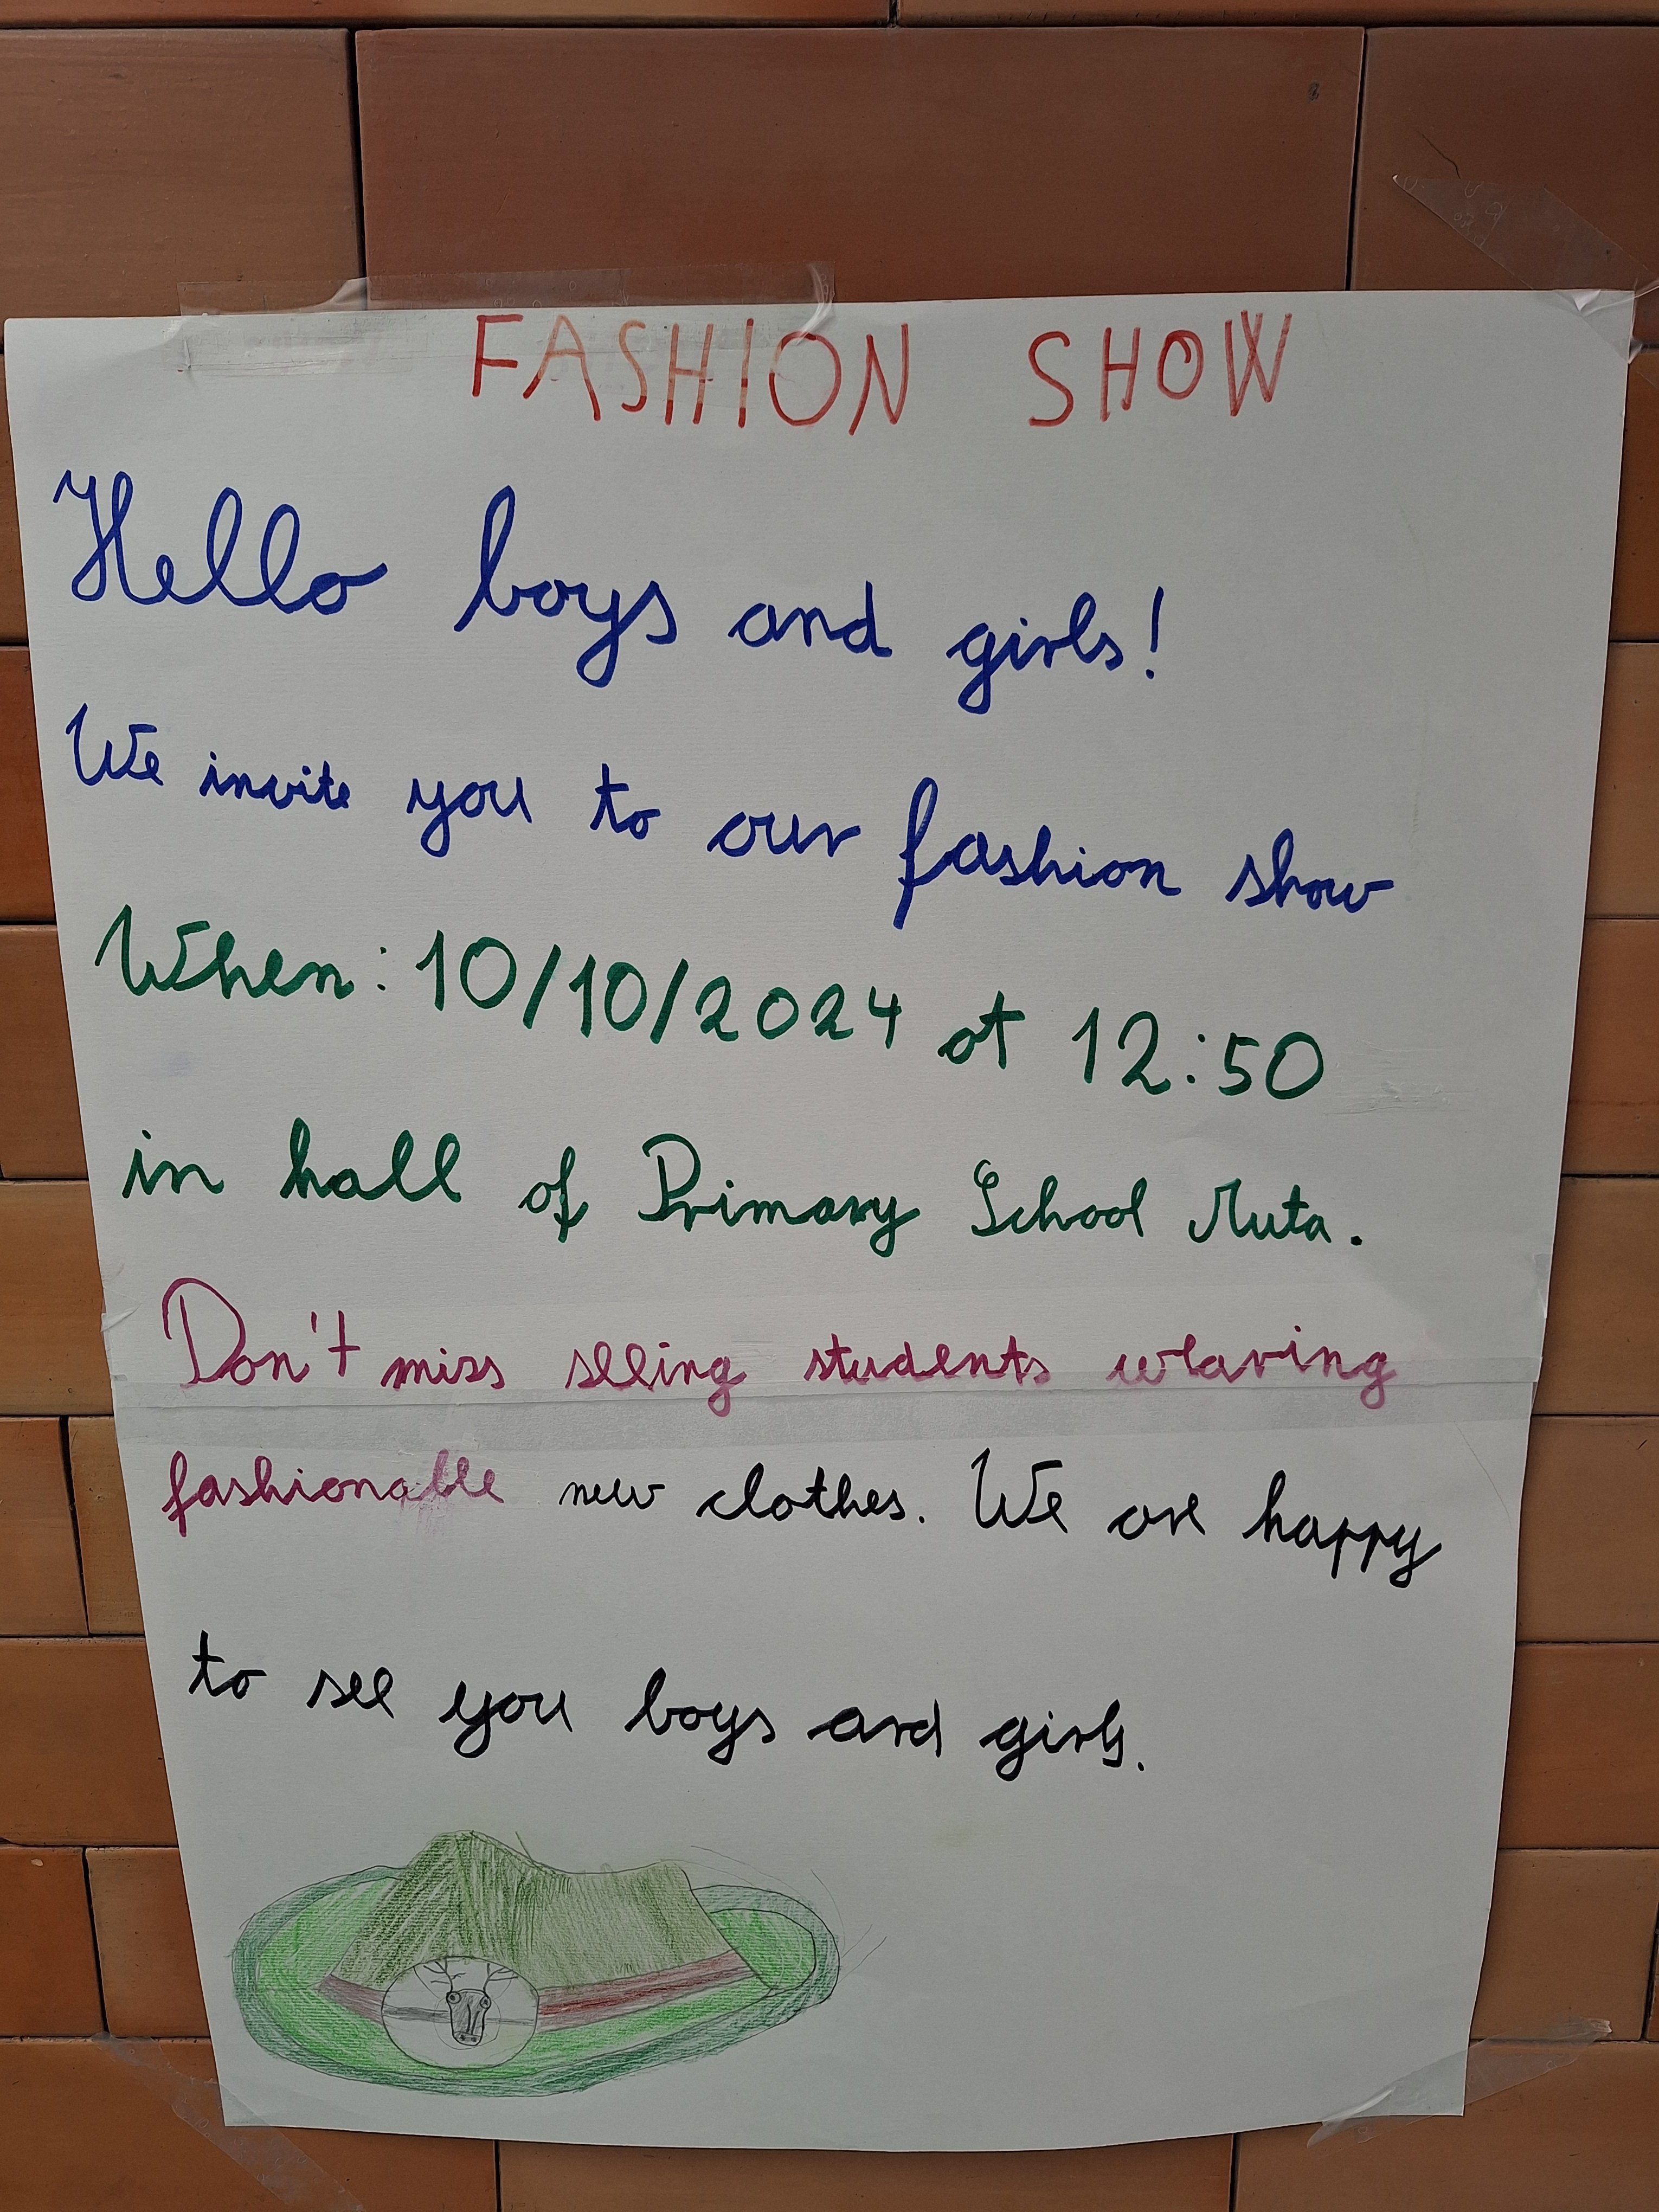 FASHION SHOW
Hello boys and girls!
We invite you to our fashion show
When: 10/10/2024 at 12:50
in hall of Primary School Muta.
Don't miss seeing students wearing
fashionable new clothes. We are happy
to see you boys and girls.